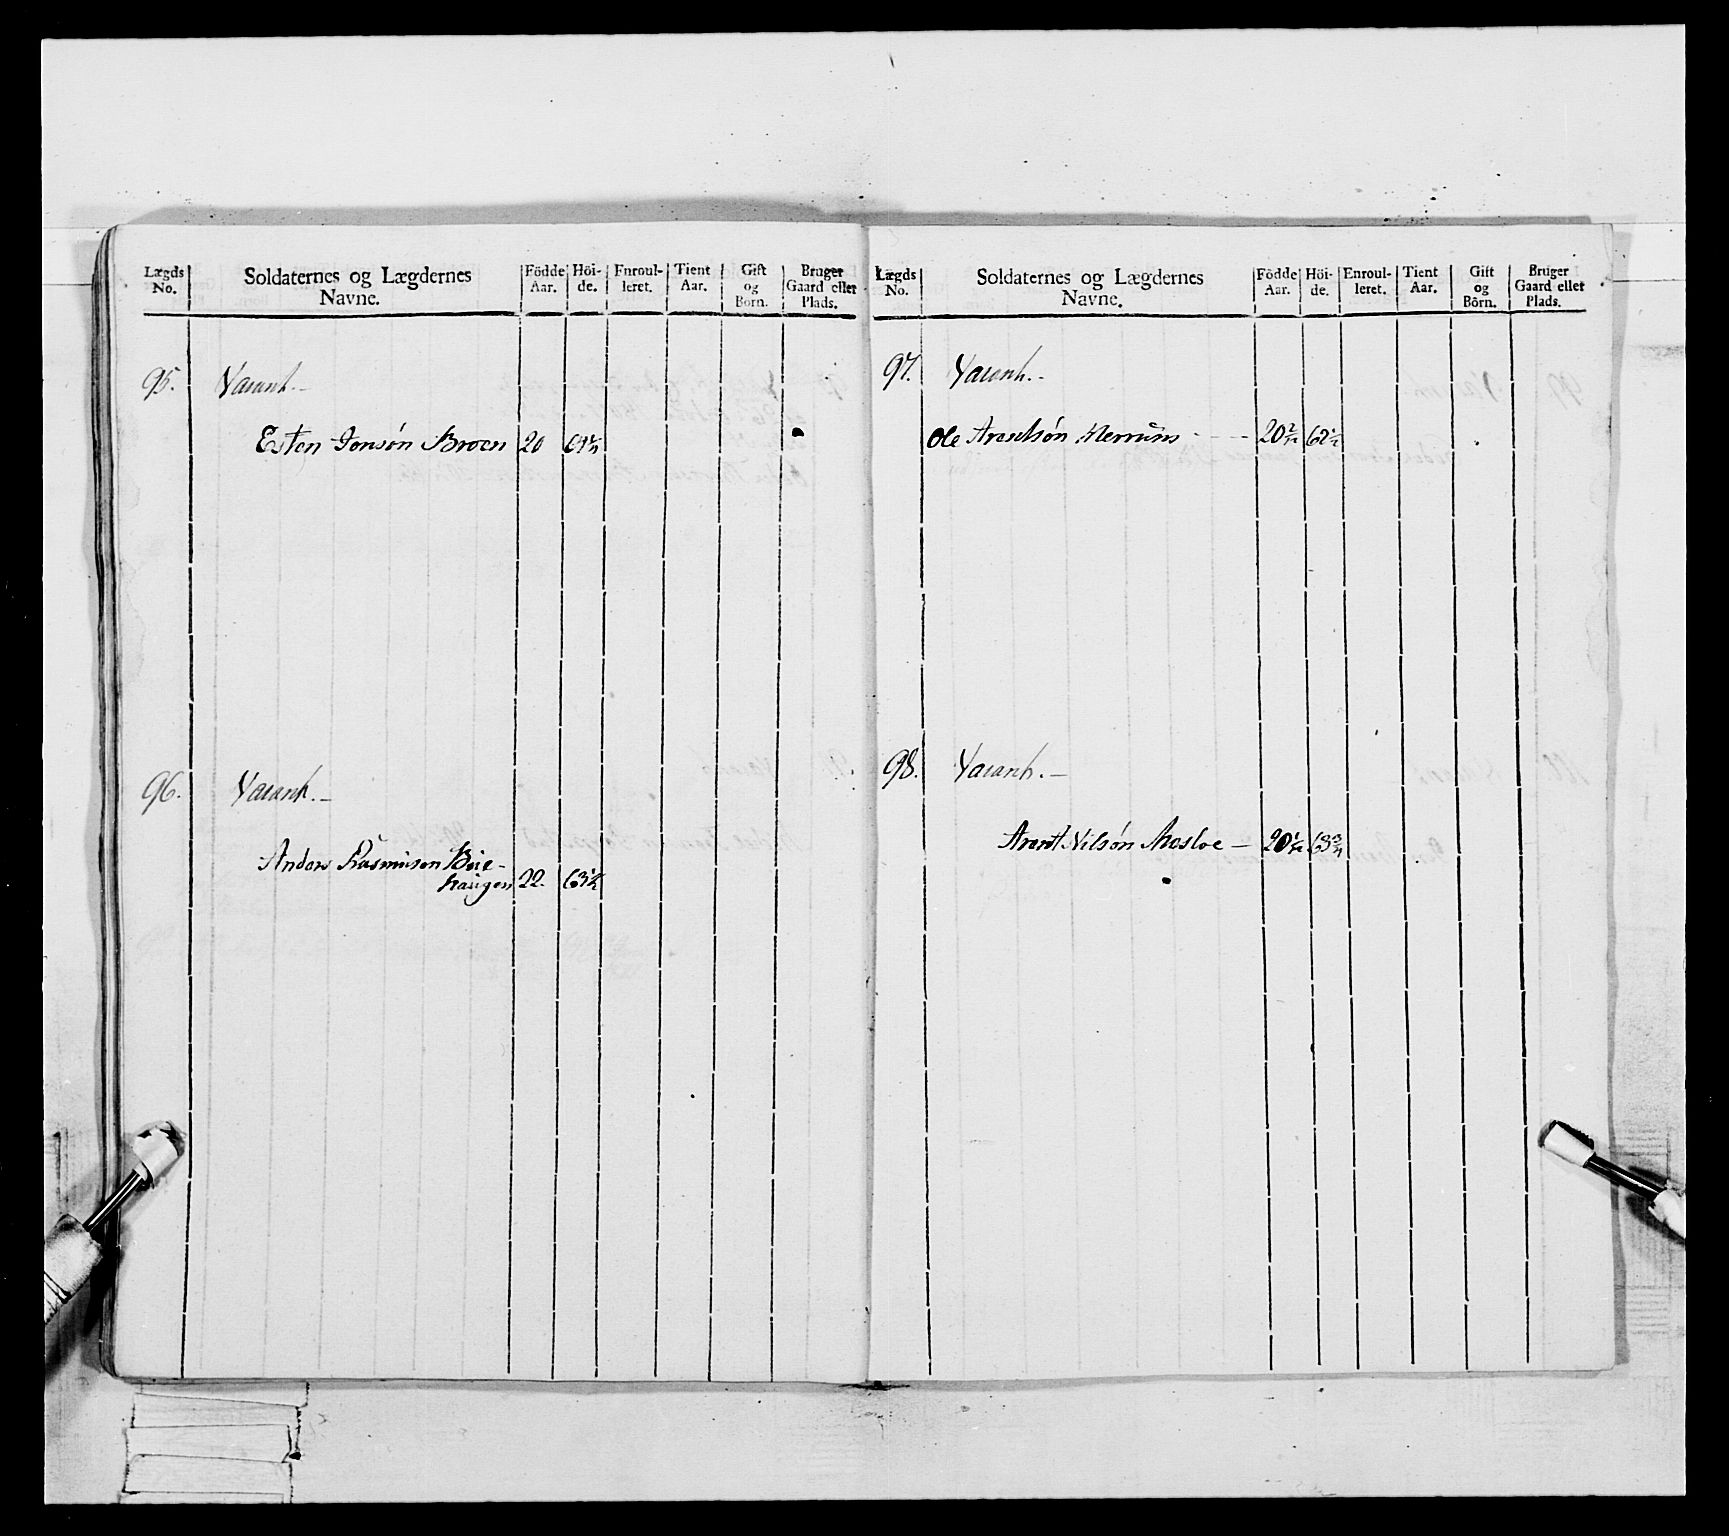 Lægds No. Soldaternes og Lægdernes Navne. Födde Aar. Höi-de. Enroul-leret. Tient Aar. Gift og Börn. Bruger Gaard eller Plads.
95. Vacant.
Esten Jonsøn Broen 20
96. Vacant.
Anders Rasmusen Bøe-
haugen 22. 63 1/2
Lægds No. Soldaternes og Lægdernes Navne. Födde Aar. Höi-de. Enroul-leret. Tient Aar. Gift og Börn. Bruger Gaard eller Plads.
97. Vacant.
Ole Arentsøn 62 1/2
98. Vacant.
Arent Nilsøn Mosloe 63 3/4